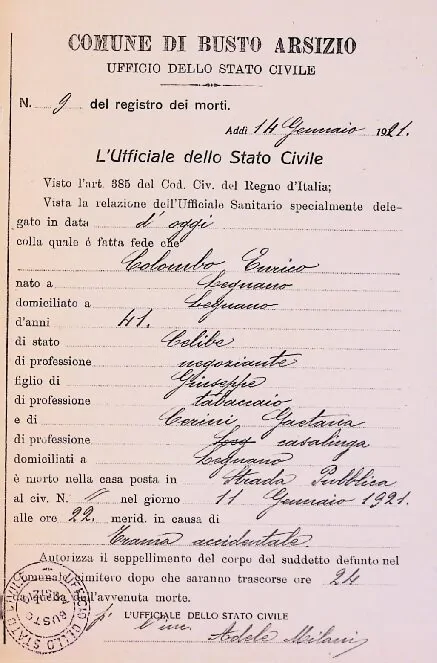 COMUNE DI BUSTO ARSIZIO
UFFICIO DELLO STATO CIVILE
N. 9 del registro dei morti.
Addì 14 Gennaio 1921.
L'Ufficiale dello Stato Civile
Visto l'art. 385 del Cod. Civ. del Regno d'Italia;
Vista la relazione dell'Ufficiale Sanitario specialmente dele-
gato in data d'oggi
colla quale è fatta fede che
Colombo Enrico
nato a Legnano
domiciliato a Legnano
d'anni 41.
di stato Celibe
di professione negoziante
figlio di Giuseppe
di professione tabaccaio
e di Cerini Gaetana
di professione casalinga
domiciliati a Legnano
è morto nella casa posta in Strada Pubblica
al civ. N. // nel giorno 11 Gennaio 1921.
alle ore 22. merid. in causa di
Trauma accidentale.
Autorizza il seppellimento del corpo del suddetto defunto nel
Comunale cimitero dopo che saranno trascorse ore 24
da quella dell'avvenuta morte.
L'UFFICIALE DELLO STATO CIVILE
Adele Milani
UFFICIO DELLO STATO CIVILE
BUSTO ARSIZIO